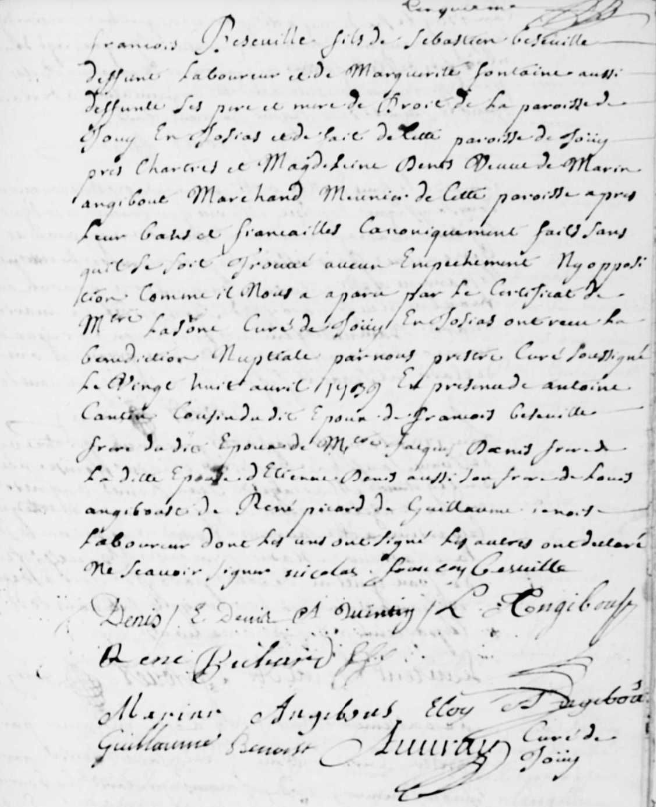 françois Beseuille fils de Sebastien beseuille
deffunt Laboureur et de Marguerite fontaine aussi
deffunte ses pere et mere de Droit de La paroisse de
Joüy En Josias et de fait de Cette paroisse de Joüy
pres Chartres et Magdeleine Denis Veuve de Marin
angibout Marchand Meunier de Cette paroisse apres
Leur bans et fiancailles Canoniquement faits sans
quil se soit trouvé aucun Empechement Ny opposi
ition Comme il Nous a aparu par Le Certificat de
Mtre Curé de Joüy En Josias ont receu La
benediction Nuptiale par nous prestre Curé soussigné
Le Vingt huit avril En presence de antoine
Cousin du dit Epoux de francois beseuille
frere du dit Epoux de Jacques Denis frere de
La ditte Epouse d'Etienne Denis aussi son frere de Louis
angiboust de René picard de Guillaume benoist
Laboureur dont Les uns ont signé Les autres ont declaré
Ne scavoir signer nicolas francoy beseuille
Denis E Denis A L Angiboust
Rene
Angibous Eloy
Guillaume Benoist Auuray Curé de
Joüy